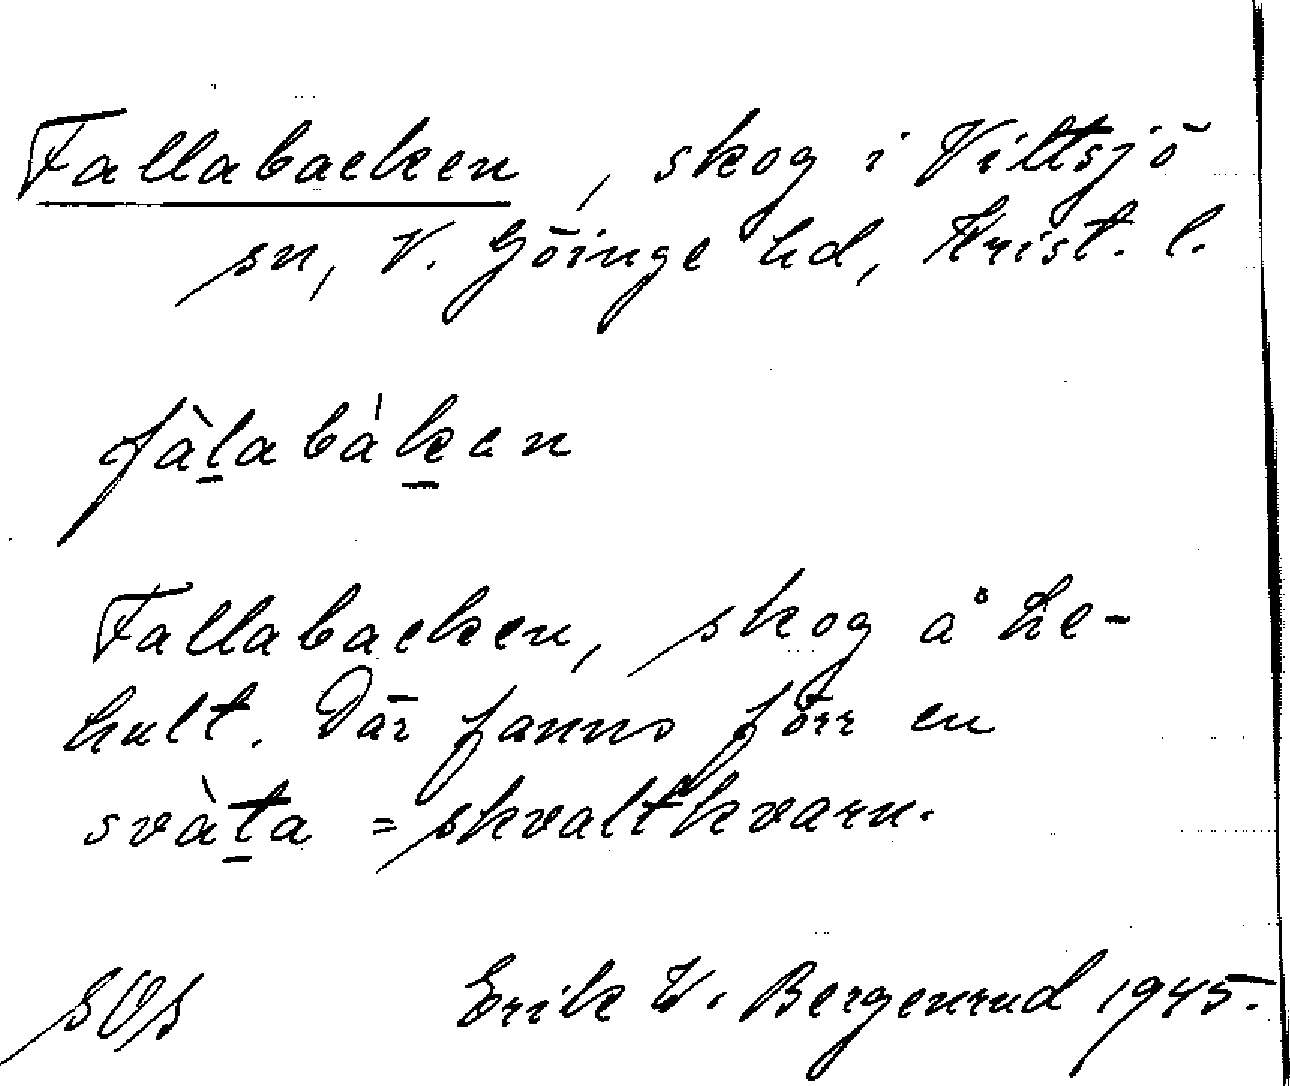 Fallabacken, skog i Vittsjö
sn, V. Göinge hd, Krist. l.
fàl̠abàk̠en
Fallabacken, skog å Le-
hult. Där fanns förr en
svàt̠a = skvaltkvarn.
SOS Erik W. Bergenrud 1945.